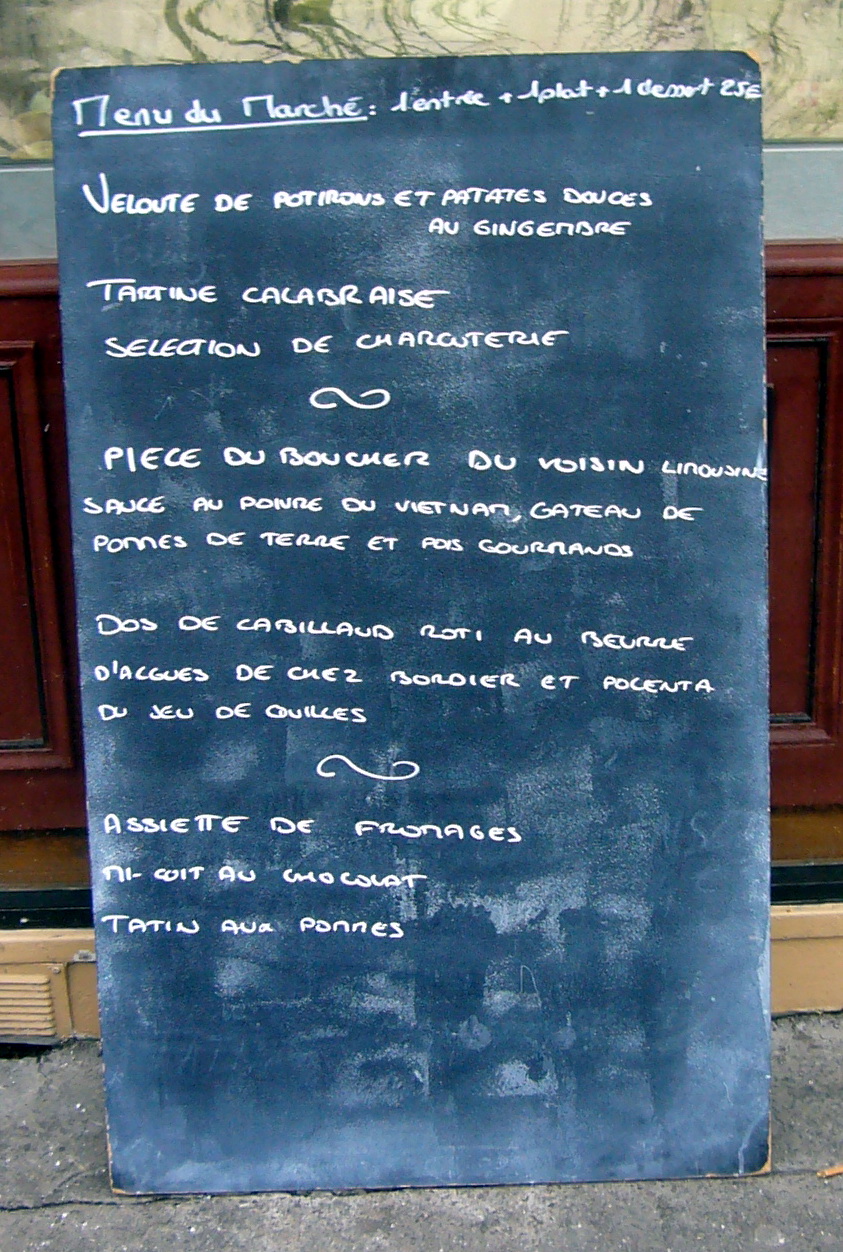 Menu du Marché : 1 entrée + 1 plat + 1 dessert 25€
VELOUTE DE POTIRONS ET PATATES DOUCES
AU GINGEMBRE
TARTINE CALABRAISE
SELECTION DE CHARCUTERIE
PIECE DU BOUCHER DU VOISIN LIMOUSINE
SAUCE AU POIVRE DU VIETNAM, GATEAU DE
POMMES DE TERRE ET POIS GOURMANDS
DOS DE CABILLAUD ROTI AU BEURRE
D'ALGUES DE CHEZ BORDIER ET POLENTA
DU JEU DE QUILLES
ASSIETTE DE FROMAGES
MI-CUIT AU CHOCOLAT
TATIN AUX POMMES